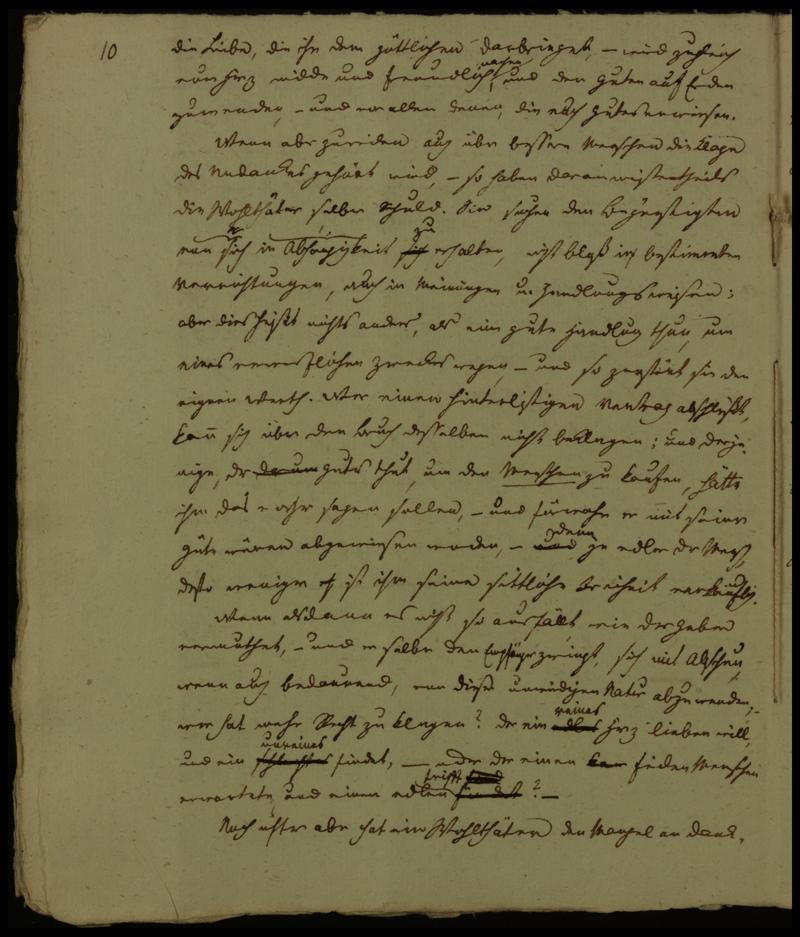 10
die Liebe, die ihr dem göttlichen darbringet, – wird zugleich
euer Herz milde und freundlich machen, und den Guten auf Erden
zuwenden, – und vor allen denen, die euch Gutes erwiesen.
Wenn aber zuweilen auch über bessere Menschen die Klage
des Undankes gehört wird, – so haben daran meistentheils
die Wohlthäter selber Schuld. Sie suchen den Begünstigten
von sich in Abhängigkeit zu erhalten, nicht bloß in bestimmten
Verrichtungen, auch in Meinungen u. Handlungsweisen;
aber dies heißt nichts anders, als eine gute Handlung thun, um
eines verwerflichen Zweckes wegen, – und so zerstört sie den
eignen Werth. Wer einen hinterlistigen Vertrag abschließt,
kann sich über den Bruch desselben nicht beklagen; und derje-
nige, der darum gutes thut, um den Menschen zu kaufen, hätte
ihm das vorher sagen sollen, – und fürwahr er mit seiner
Güte wären abgewiesen worden, – und denn je edler der Mensch,
desto weniger ist ihm seine sittliche Freiheit verkäuflich.
Wenn alsdann es nicht so ausfällt, wie der Geber
vermuthet, – und er selber den Empfänger zwingt, sich mit Abscheu,
wenn auch bedauernd, von dieser unwürdigen Natur abzuwenden, –
wer hat mehr Recht zu klagen? der ein edles reines Herz lieben will,
und ein schlechtes unreines findet, – oder der einen feilen Menschen
erwartete, und einen edlen findet trifft? –
Noch öfter aber hat ein Wohlthäter den Mangel an Dank,